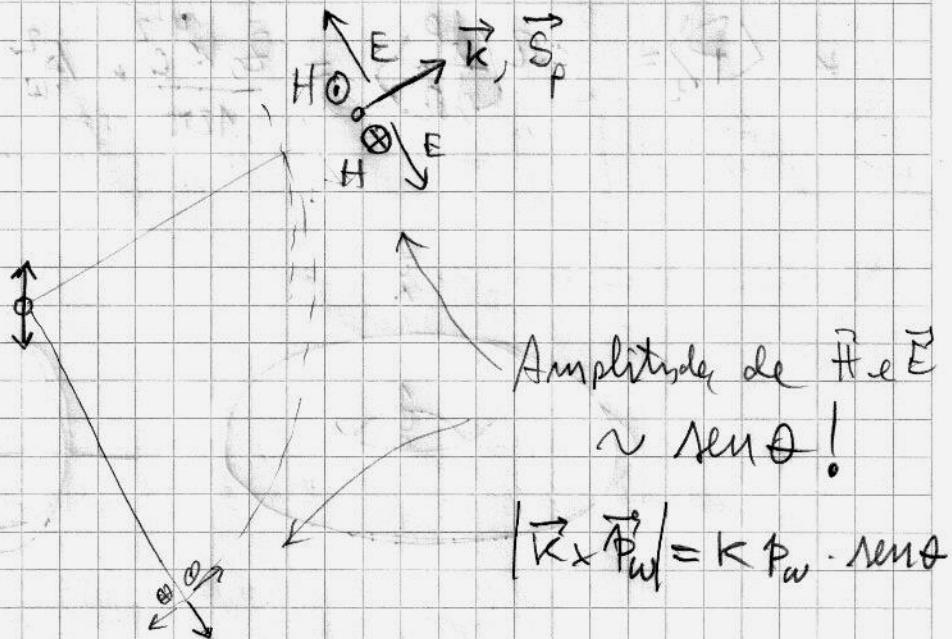 E
k⃗, S⃗_p
H ⊙
⊗ E
H
Amplitude de H⃗ e E⃗
~ sen θ !
|k⃗ x p⃗_ω| = k p_ω · sen θ
⊗ ⊙